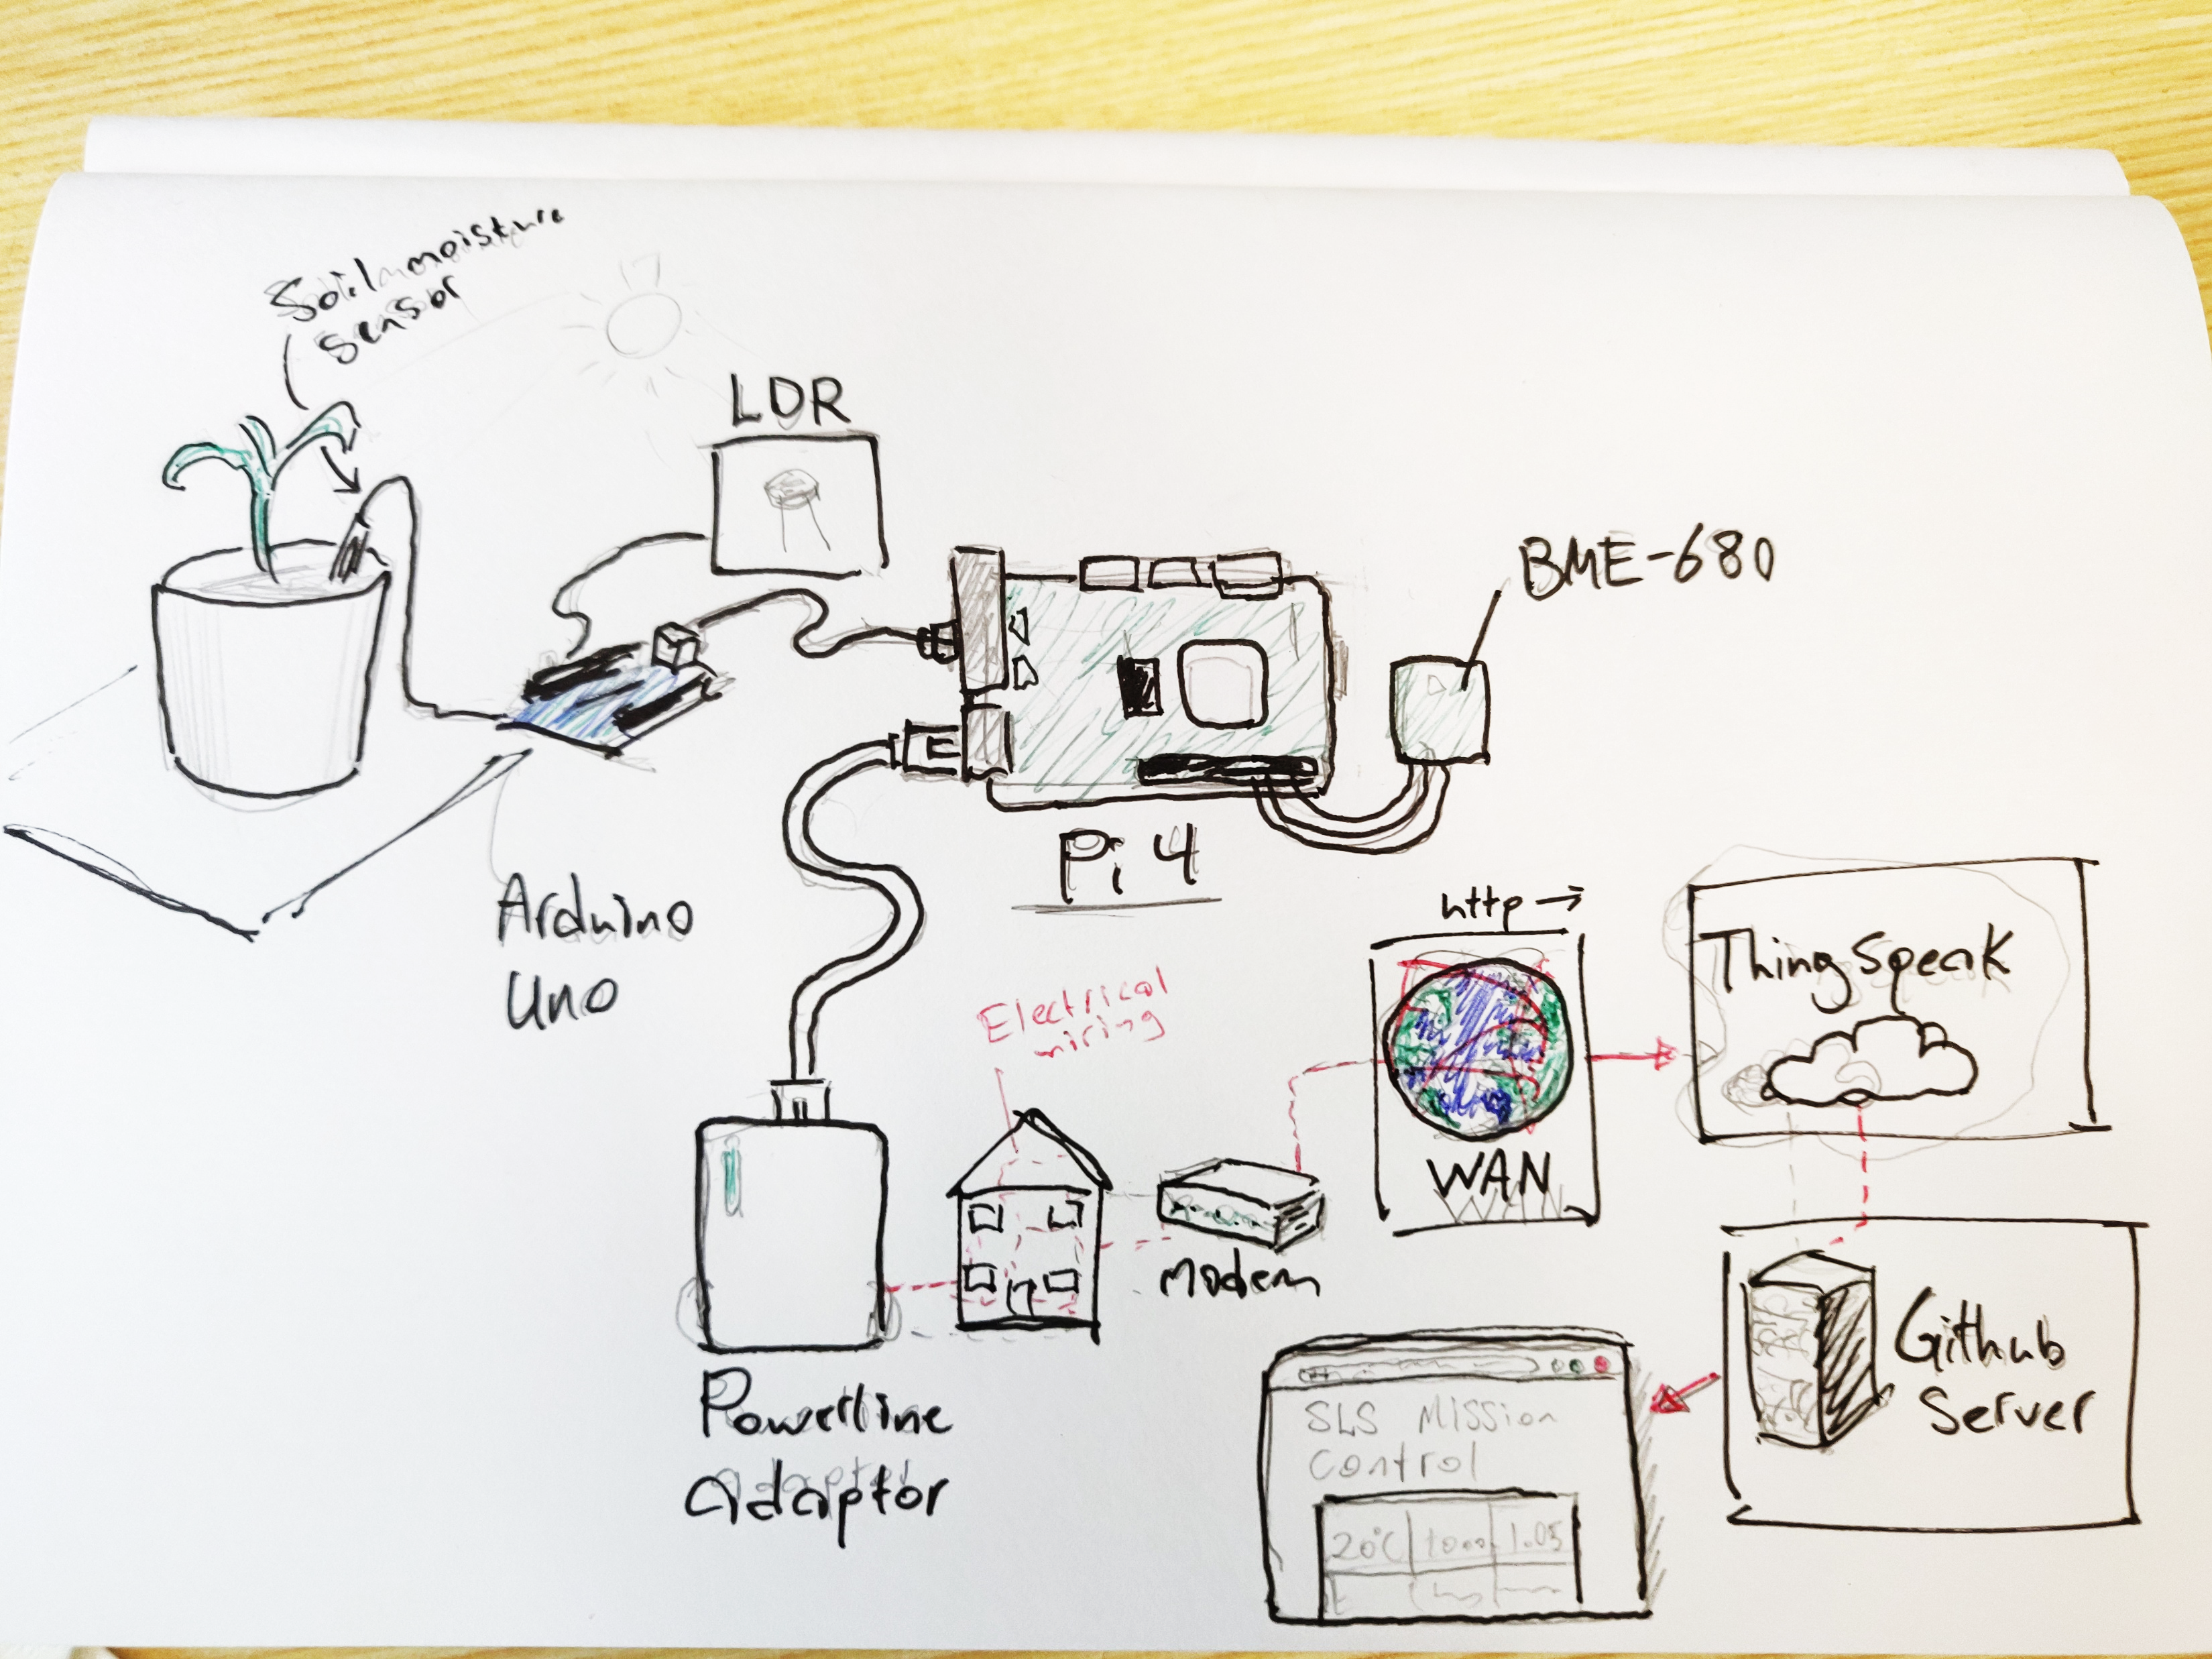 Soil moisture
sensor
LDR
BME-680
Pi 4
Arduino
Uno
http →
Thing Speak
Electrical
wiring
WAN
modem
Github
Server
Powerline
adaptor
SLS Mission
Control
20°C 1000 1.05